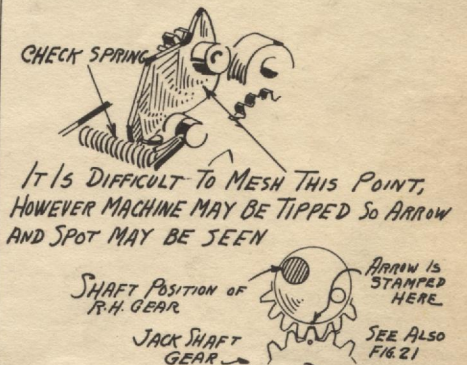 CHECK SPRING
IT IS DIFFICULT TO MESH THIS POINT,
HOWEVER MACHINE MAY BE TIPPED SO ARROW
AND SPOT MAY BE SEEN
SHAFT POSITION OF
R.H. GEAR
ARROW IS
STAMPED
HERE
JACK SHAFT
GEAR
SEE ALSO
FIG. 21